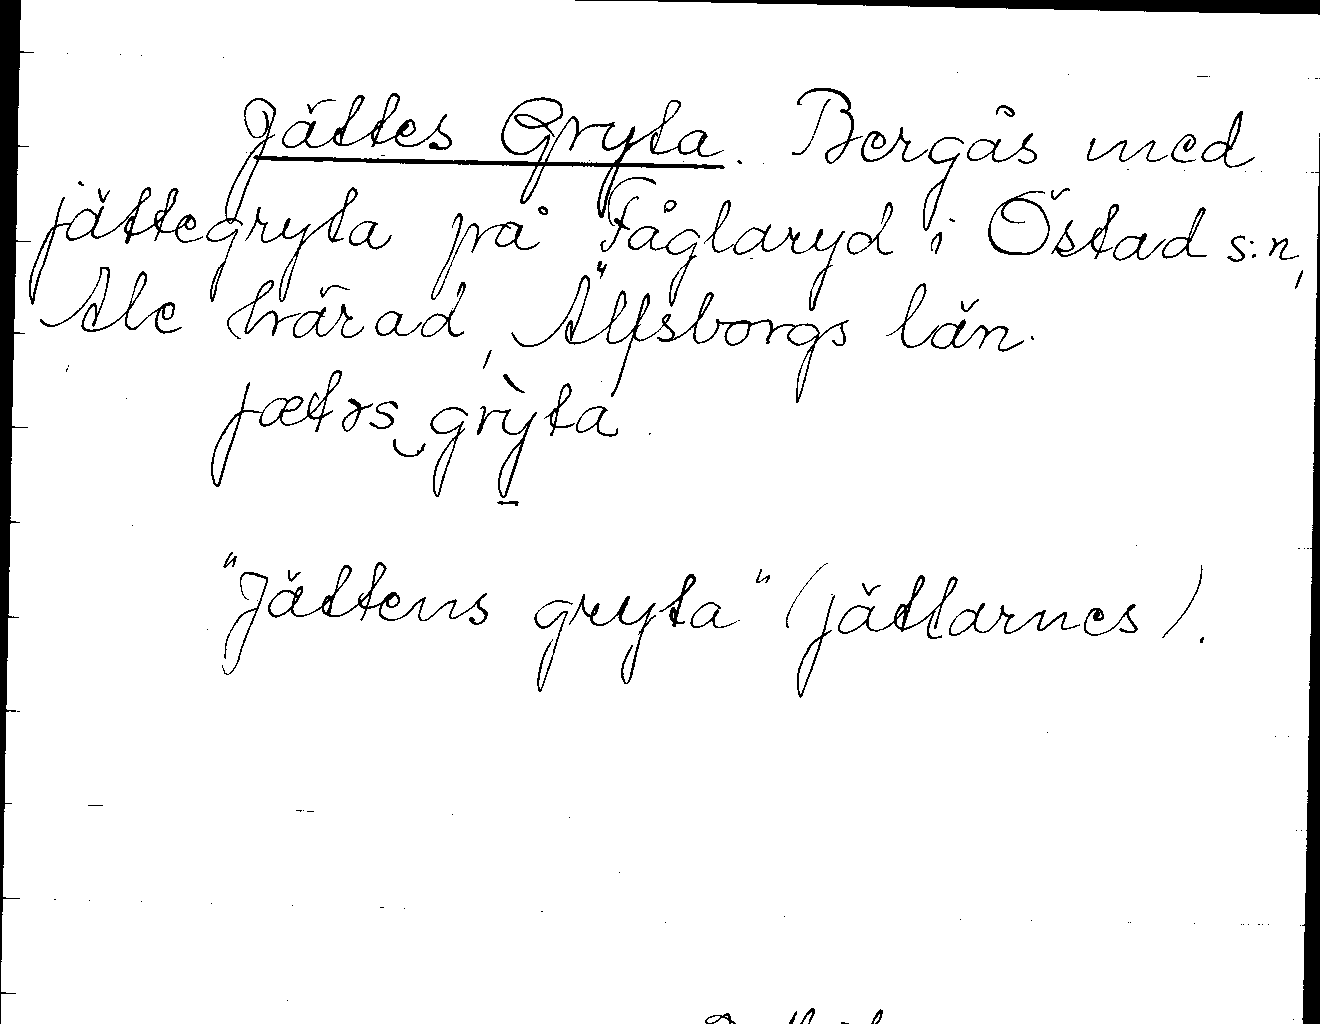 Jättes Gryta. Bergås med
jättegryta på Fåglaryd i Östad s:n,
Ale härad, Älfsborgs län.
jætəs‿grỳ̱ta
"Jättens gryta" (jättarnes).